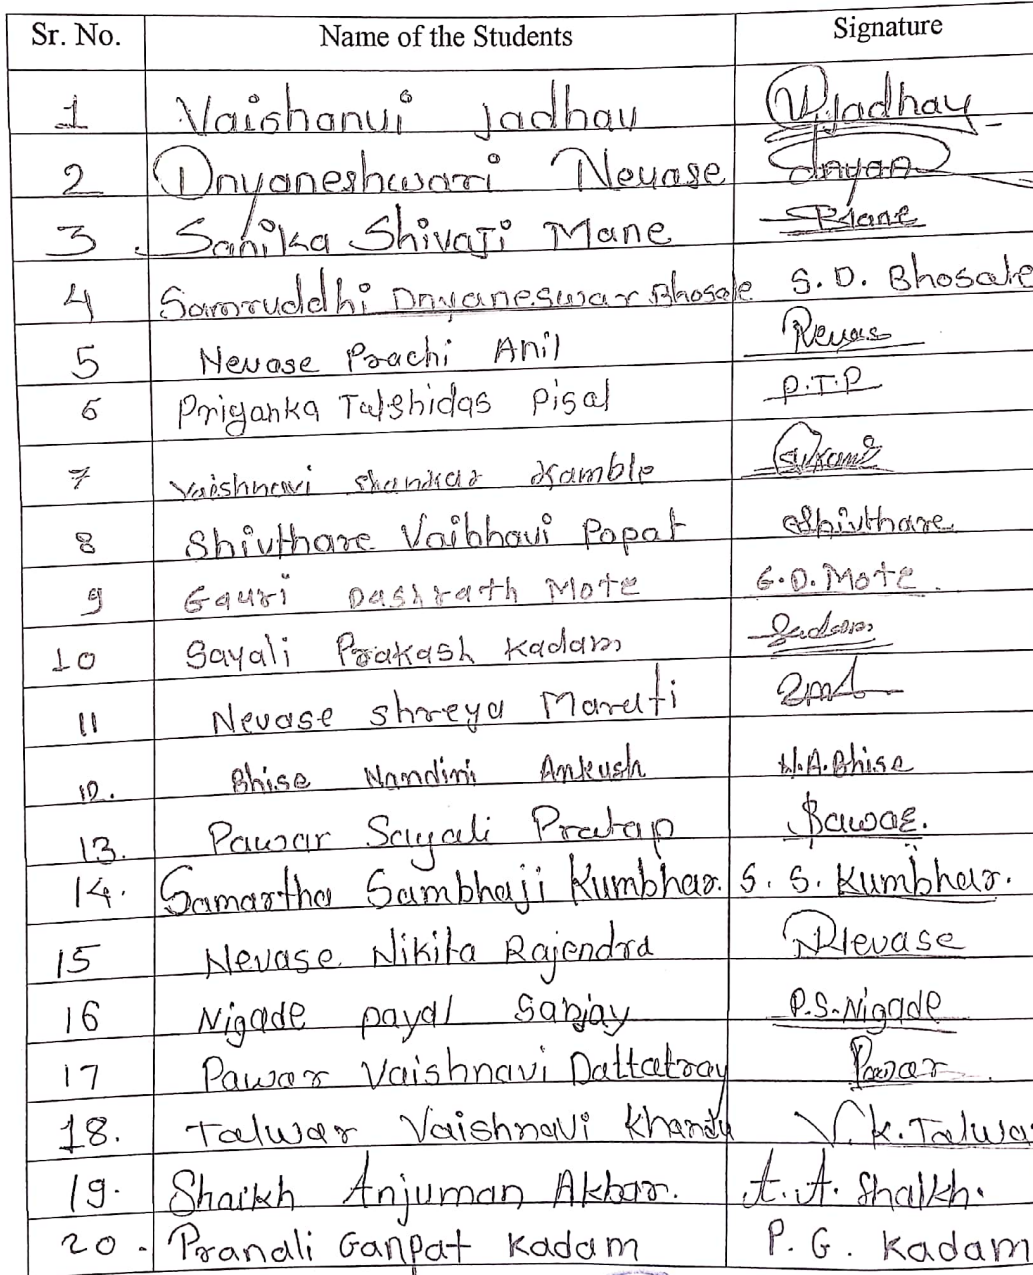 Sr. No. Name of the Students Signature
1 Vaishanvi Jadhav V.Jadhav
2 Dnyaneshwari Nevase Dnyan
3. Sanika Shivaji Mane SMane
4 Samruddhi Dnyaneswar Bhosale S. D. Bhosale
5 Nevase Prachi Anil
6 Priyanka Tulshidas Pisal P.T.P
7 Vaishnavi Shankar Kamble
8 Shivthare Vaibhavi Popat Shivthare
9 Gauri Dashrath Mote G.D.Mote
10 Sayali Prakash Kadam
11 Nevase Shreya Maruti
12. Bhise Nandini Ankush N.A.Bhise
13. Pawar Sayali Pratap
14. Samartha Sambhaji Kumbhar. S. S. Kumbhar.
15 Nevase Nikita Rajendra Nevase
16 Nigade payal Sanjay P.S.Nigade
17 Pawar Vaishnavi Dattatray Pawar
18. Talwar Vaishnavi Khandu V.K.Talwa
19. Shaikh Anjuman Akbar. A.A. Shaikh.
20. Pranali Ganpat Kadam P. G. Kadam